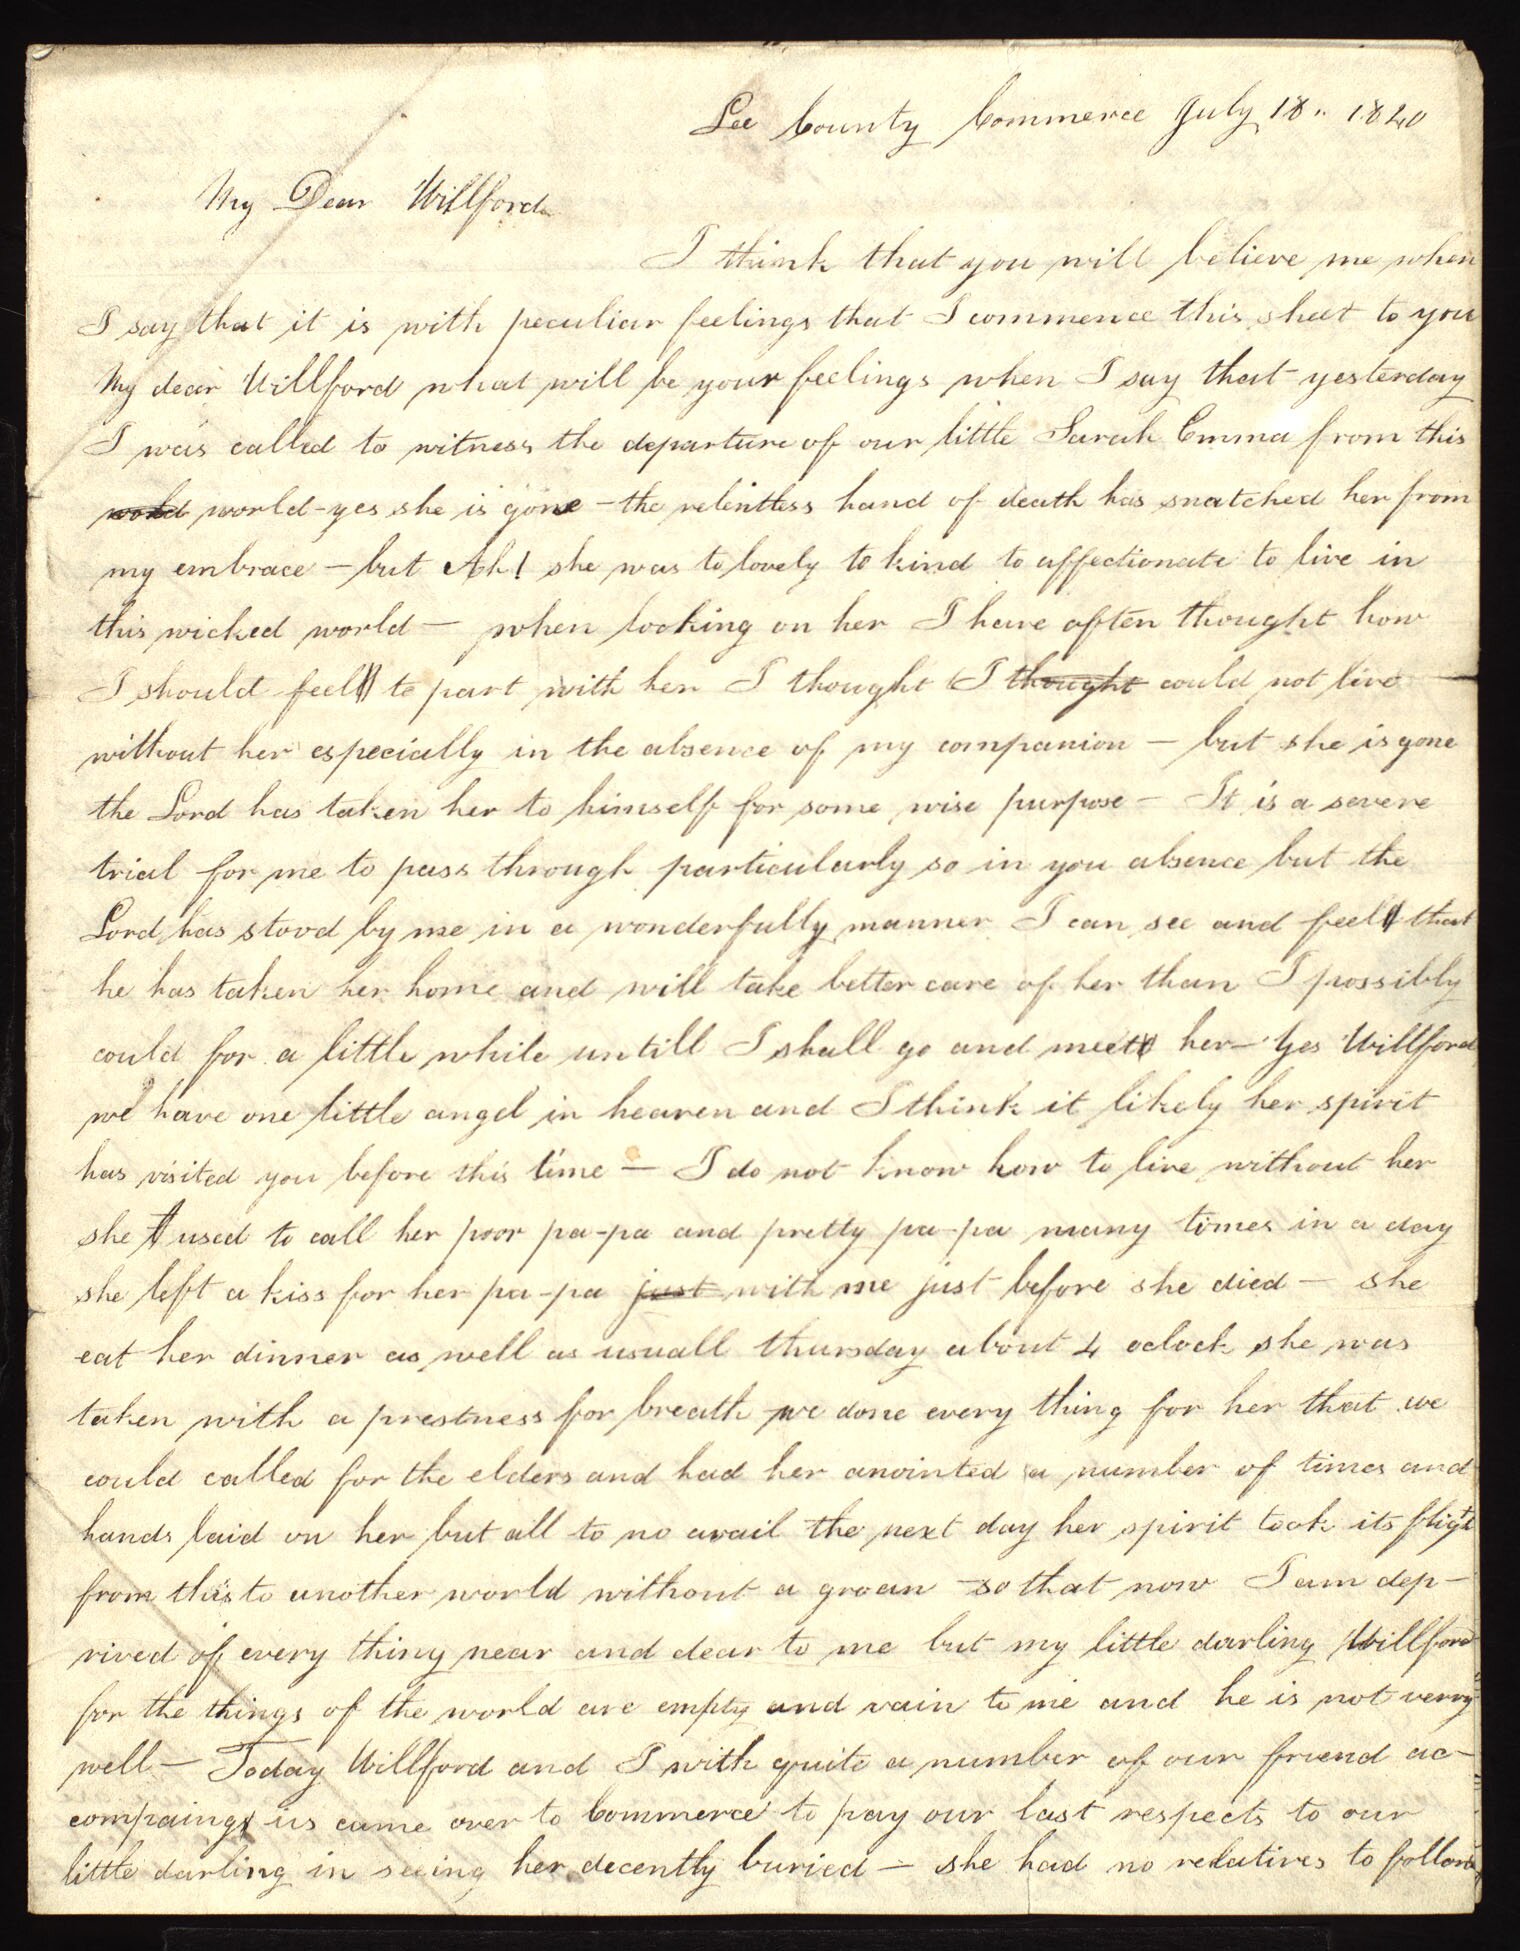 Lee County Commerce July 18.. 1840
My Dear Willford
I think that you will believe me when
I say that it is with peculiar feelings that I commence this sheet to you
My dear Willford what will be your feelings when I say that yesterday
I was called to witness the departure of our little Sarah Emma from this
world world - yes she is gone - the relentless hand of death has snatched her from
my embrace - but Ah! she was to lovely to kind to affectionate to live in
this wicked world - when looking on her I have often thought how
I should feel to part with her I thought I thought could not live
without her especially in the absence of my companion - but she is gone
the Lord has taken her to himself for some wise purpose - It is a severe
trial for me to pass through particularly so in you absence but the
Lord has stood by me in a wonderfully manner I can see and feel that
he has taken her home and will take better care of her than I possibly
could for a little while untill I shall go and meet her - Yes Willford
we have one little angel in heaven and I think it likely her spirit
has visited you before this time - I do not know how to live without her
she used to call her poor pa-pa and pretty pa-pa many times in a day
she left a kiss for her pa-pa just with me just before she died - she
eat her dinner as well as usuall thursday about 4 oclock she was
taken with a prestness for breath we done every thing for her that we
could called for the elders and had her anointed a number of times and
hands laid on her but all to no avail the next day her spirit took its flight
from this to another world without a groan so that now I am dep-
rived of every thing near and dear to me but my little darling Willford
for the things of the world are empty and vain to me and he is not verry
well - Today Willford and I with quite a number of our friend ac-
compaing us came over to Commerce to pay our last respects to our
little darling in seeing her decently buried - she had no relatives to follow